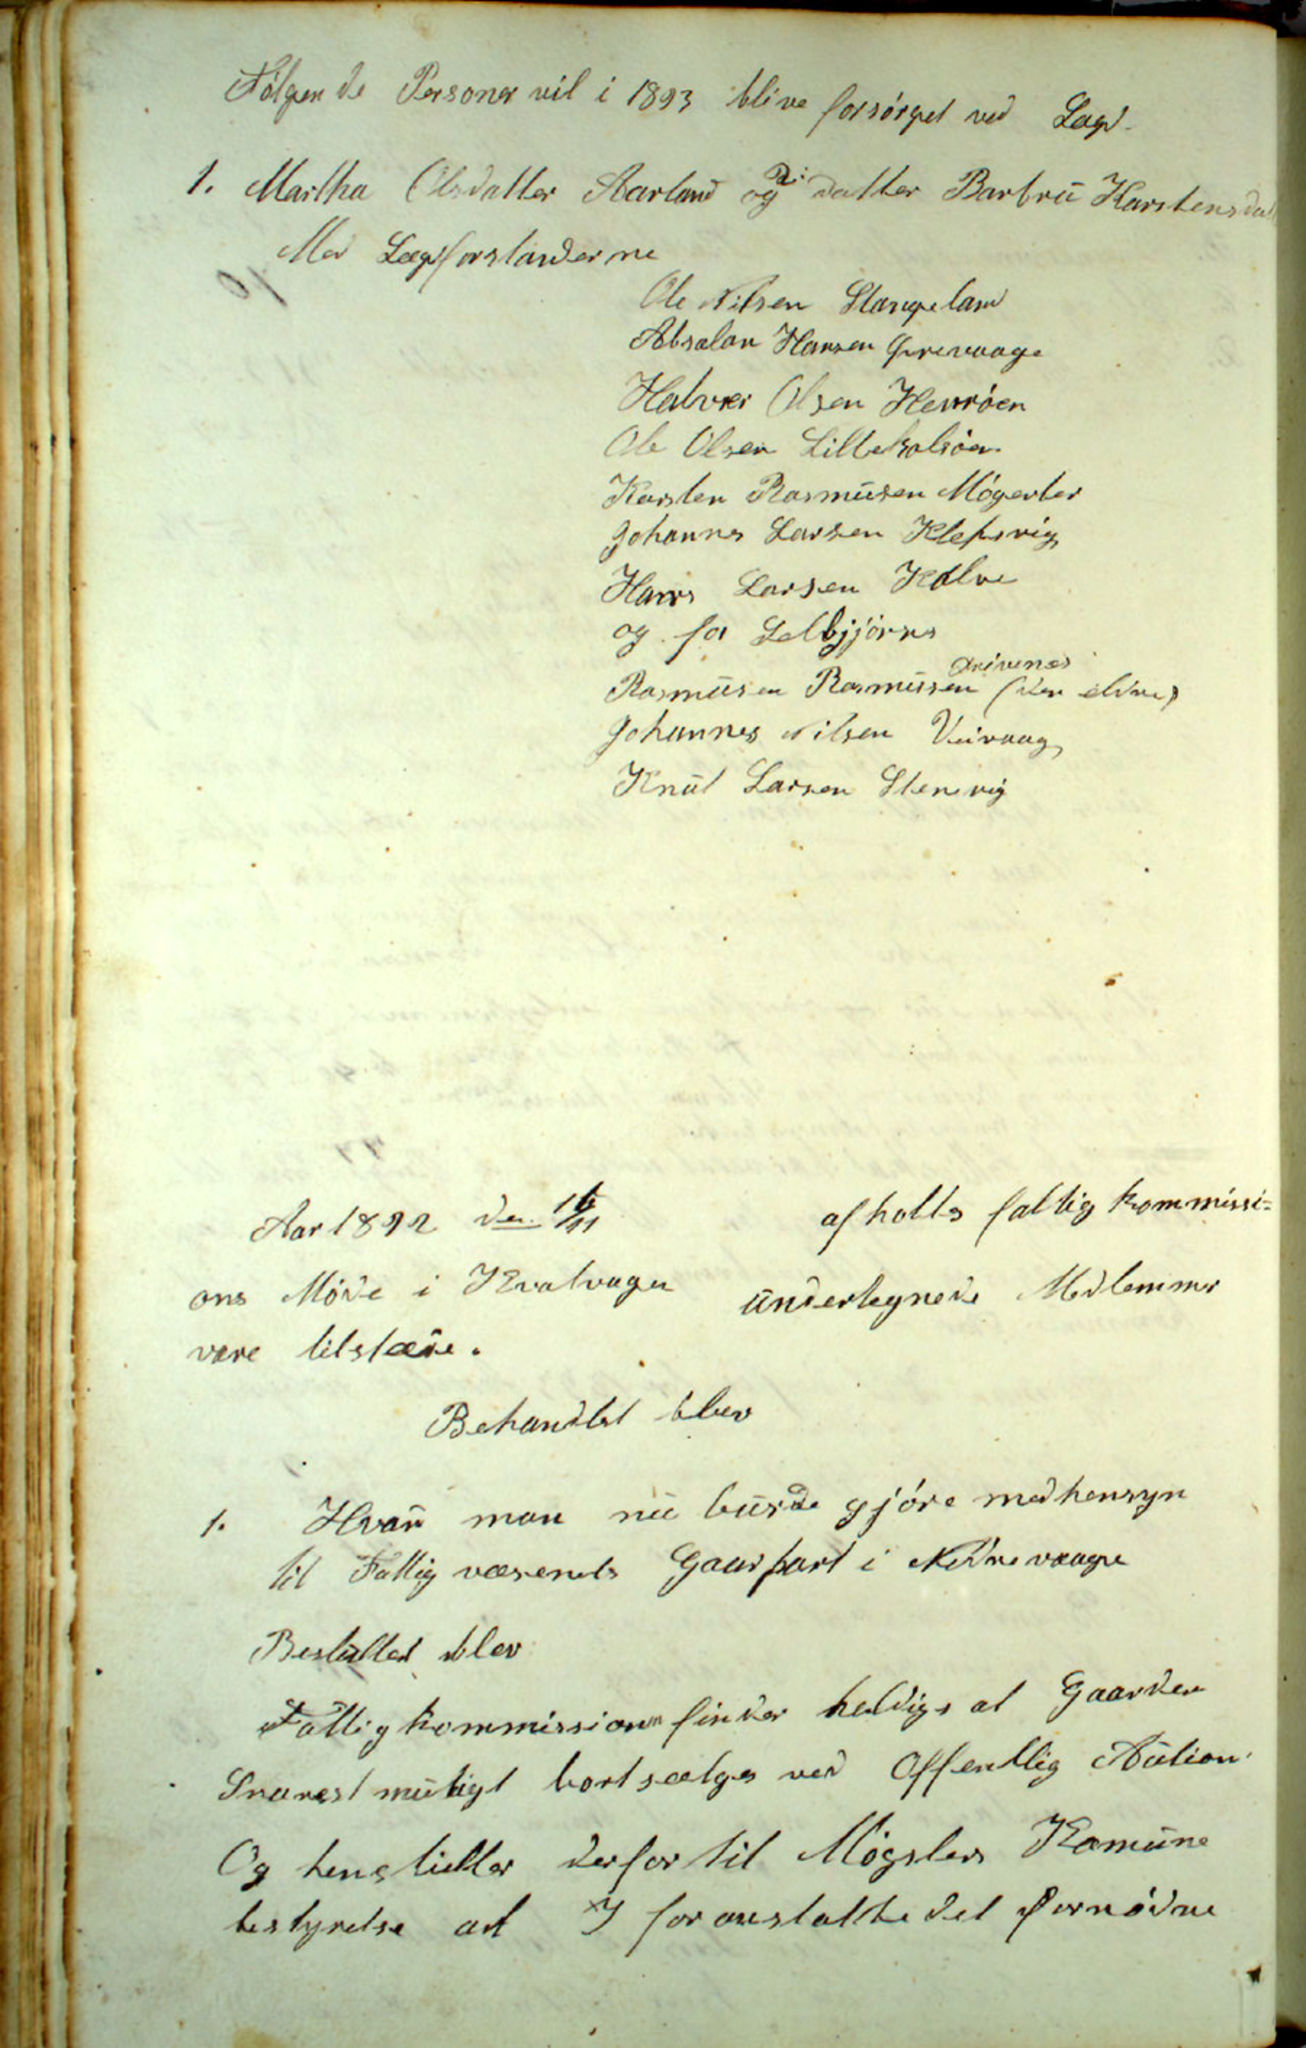 Følgende Personer vil i 1893 blive forsørget ved Lægd.
1. Martha Olsdatter Aarland og datter Barbru Karstensdatt
Med Lægdforstanderne
Ole Nilsen Stangeland
Absalon Hansen Drevaage
Halvor Olsen Henrøen
Ole Olsen Lillekalsøen
Karsten Rasmusen Møgerter
Johannes Larsen Klepsvig
Hans Larsen Kalve
og for Selbjjörns
Rasmusen Rasmussen Drivenes (den eldre)
Johannes Nilsen Veivaag
Knut Larsen Stenevig
Aar 1892 den 16/11 afholts fattig kommissi=
ons Møde i Kvalvagen undertegnede Medlemmer
vare tilstæde.
Behandlet blev
1. Hvad man nu burde gjøre medhensyn
til Fattig væsenets Gaarpart i Nedrevaage
Besluttet blev
Fattigkommissionen finder heldigs at Gaarden
Snarest muligt bortsælges ved Offentlig Aution.
Og henstiller derfor til Møgsters Komune
bestyrelse at I foranstalte det fornødne